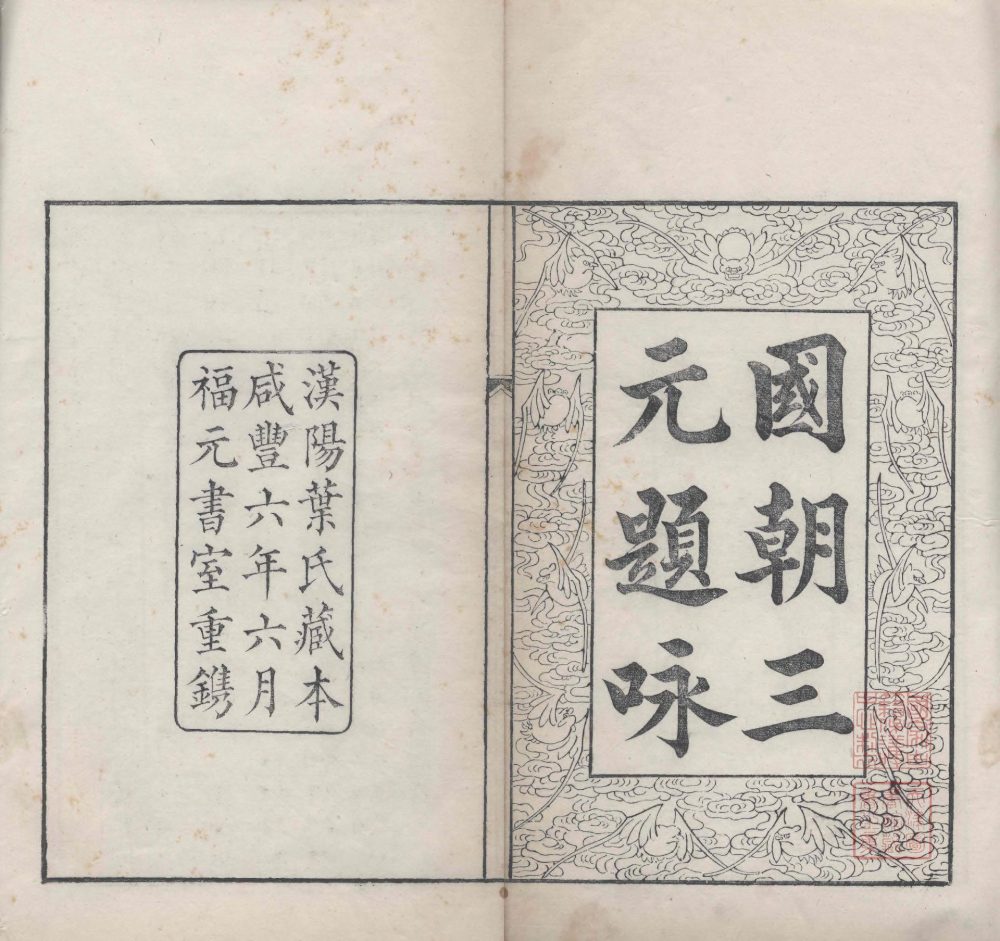 國朝三
元題咏
漢陽葉氏藏本
咸豐六年六月
福元書室重鐫